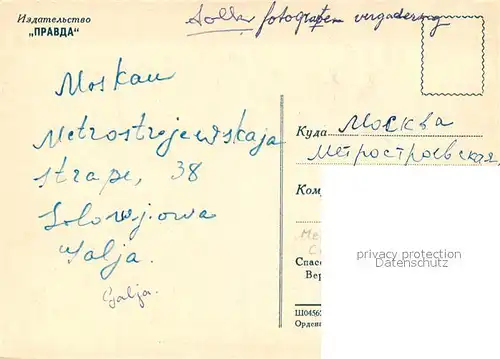 Издательство
„ПРАВДА"
fotografen vergadering
Moskau
Metrostrojewskaja
strape, 38
Solowjowa
Galja.
Galja.
Куда Москва
Метростроевская,
Ком
Спасс
Вер
Ш0456
Ордена
privacy protection
Datenschutz